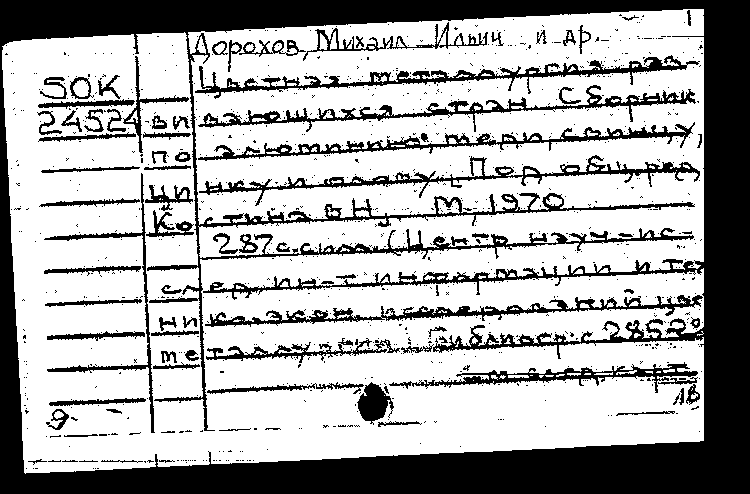 Дорохов, Михаил Ильич и др.
50К Цветная металлургия раз-
24524 вивающихся стран. Сборник
по алюминию, меди, свинцу,
цинку и олову. Под общ. ред.
Костина В Н. М, 1970
287 с. с илл. (Центр науч-ис-
след. ин-т информации и тех
нико-экон. исследований цвет
металлургии) Библиогр: с 285
см. след. карт
9